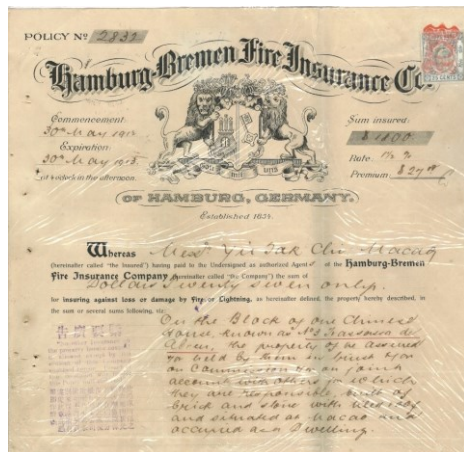 POLICY Nº 2831
Hamburg-Bremen Fire Insurance Co.
Commencement:
30th May 1912
Expiration:
30th May 1913
at 4 o'clock in the afternoon.
Sum insured:
$ 1800
Rate
Premium $ 27.00
OF HAMBURG, GERMANY.
Established 1854.
Whereas Messrs Yii Tak Macao
(hereinafter called "the Insured") having paid to the Undersigned as authorized Agents of the Hamburg-Bremen
Fire Insurance Company (hereinafter called "the Company") the sum of
Dollars Twenty seven only.
for insuring against loss or damage by Fire or Lightning, as hereinafter defined, the property hereby described, in
the sum or several sums following, viz:
On the Block of one Chinese
House, known as Nº 3 Travessa do
the property of the Assured
or held by them in trust or
on Commission or on joint
account with others for which
they are responsible, built of
brick and stone with
and situated at Macao and
occupied as a Dwelling.